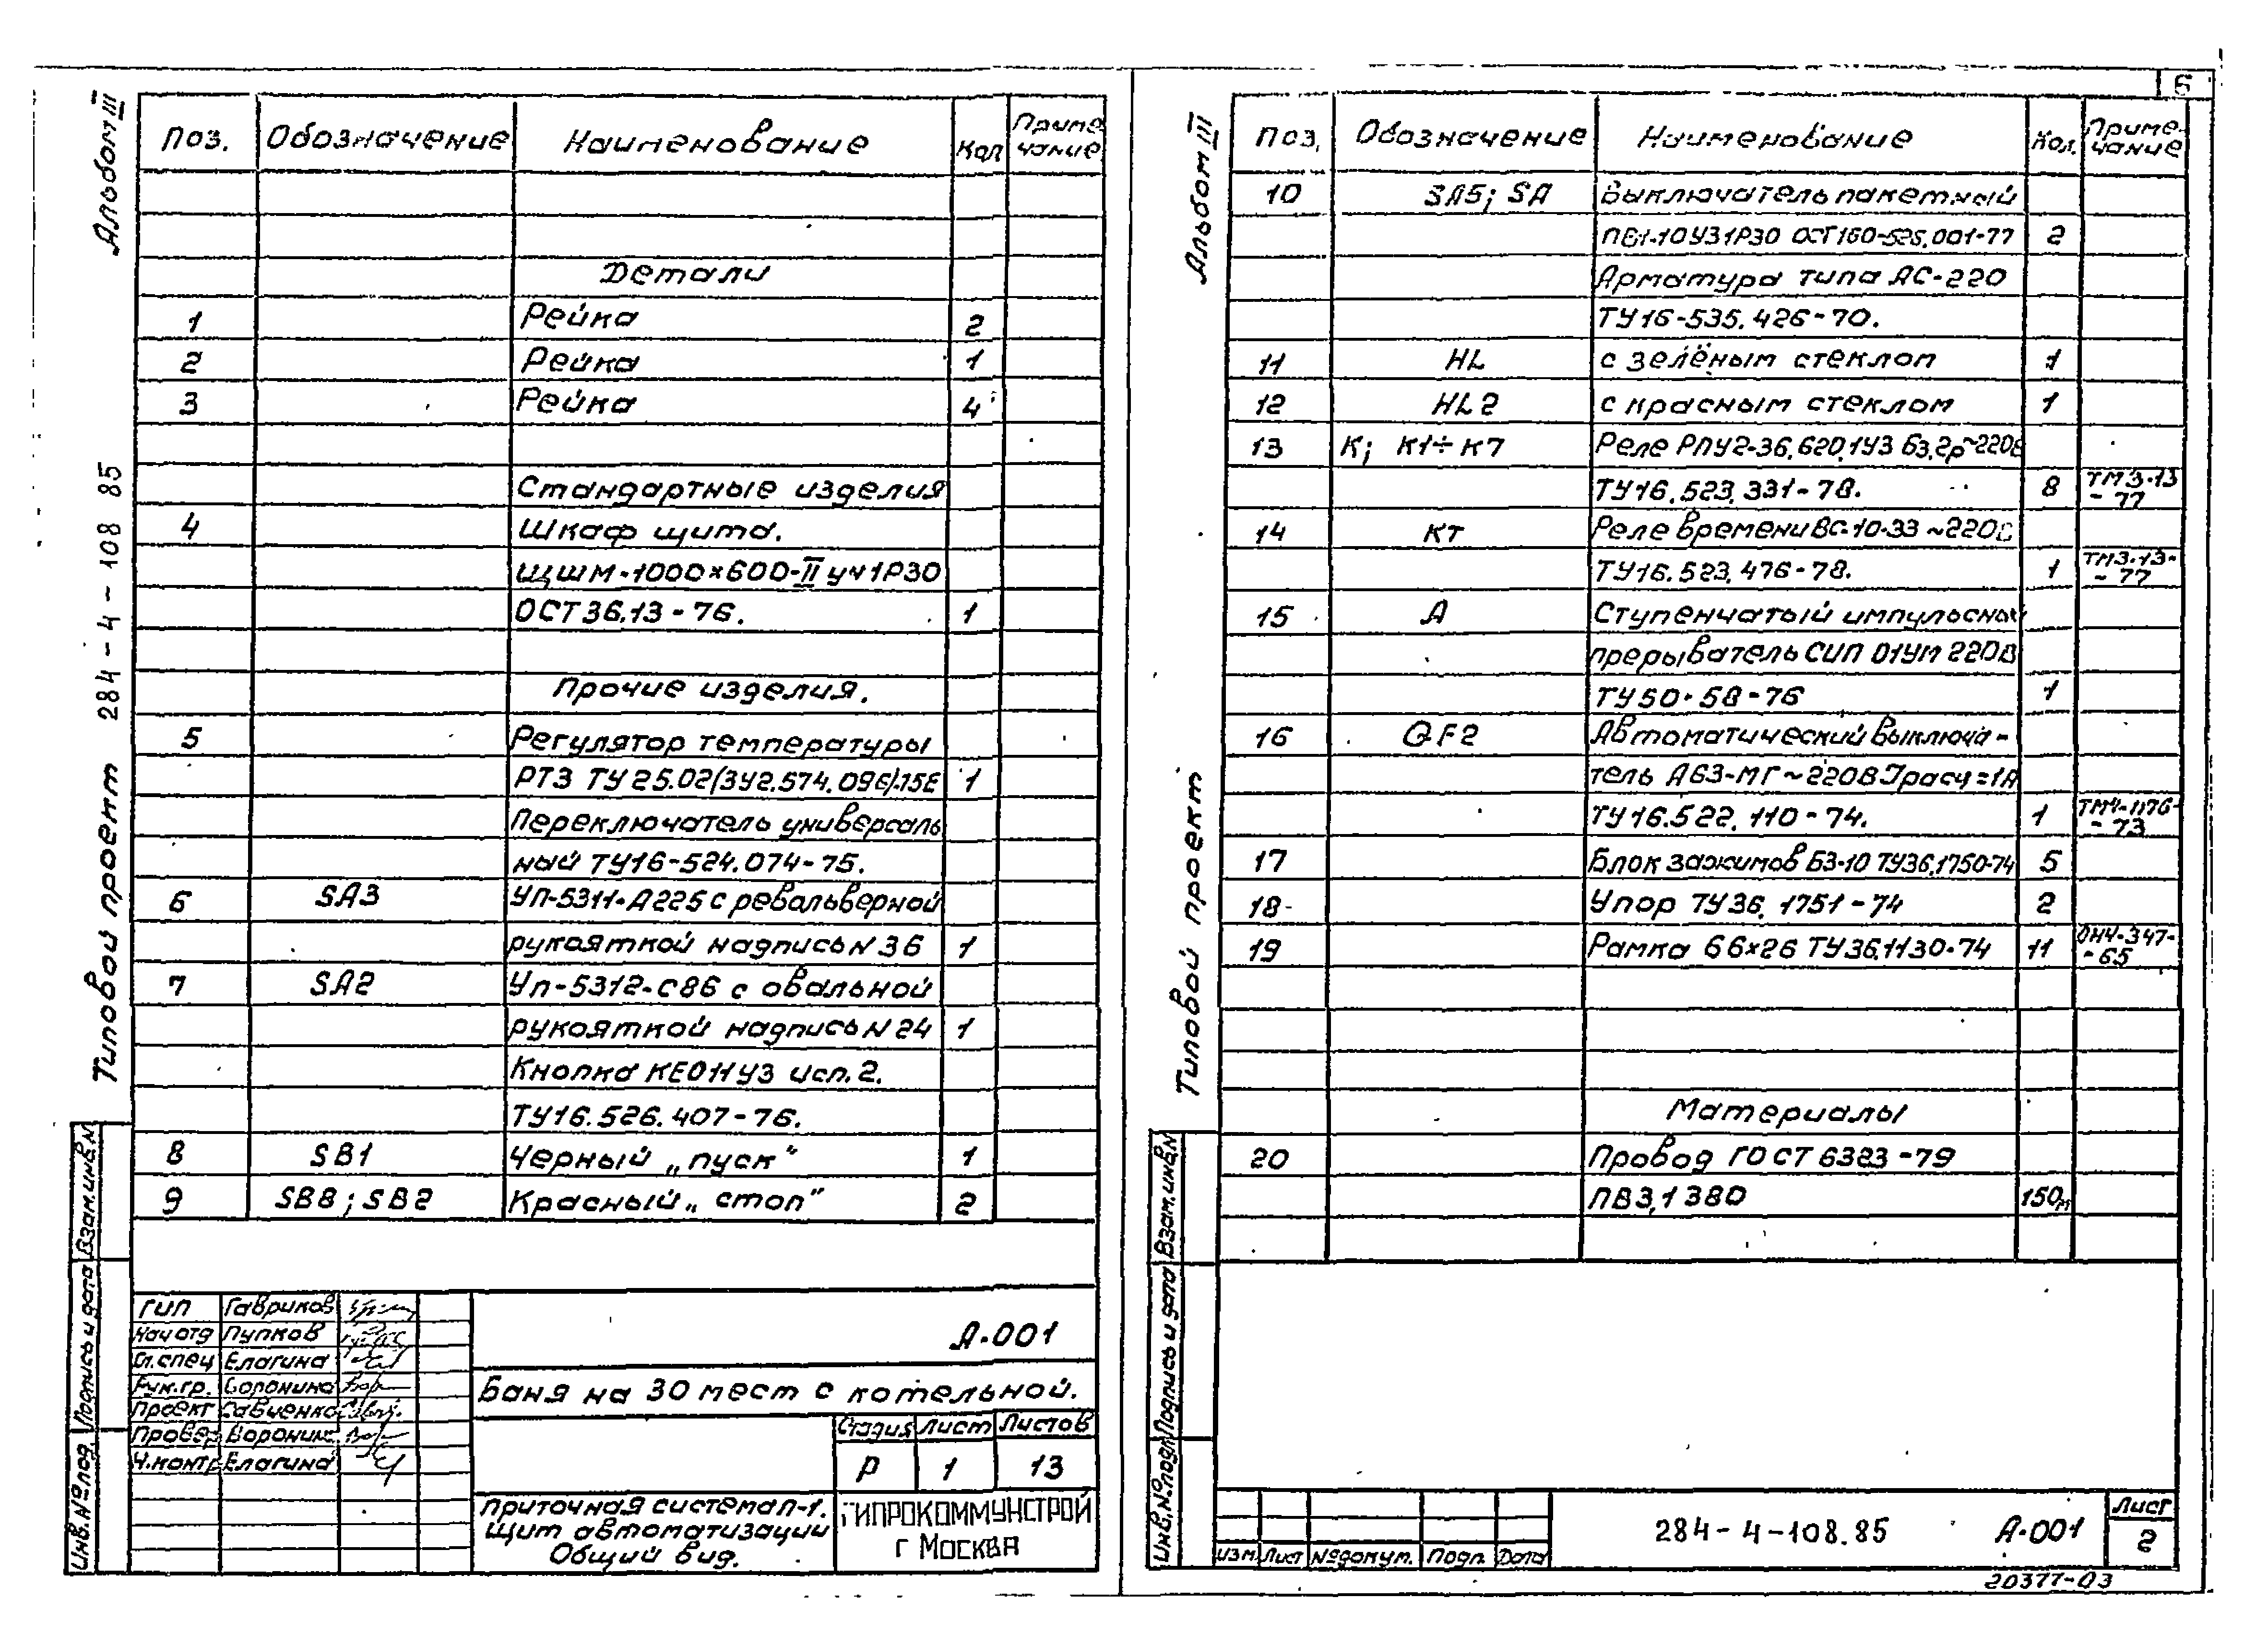 Альбом III
Типовой проект 284-4-108 85
Поз. Обозначение Наименование Кол Примечание
Детали
1 Рейка 2
2 Рейка 1
3 Рейка 4
Стандартные изделия
4 Шкаф щита.
ЩШМ-1000×600-II УЧ 1Р30
ОСТ 36.13-76. 1
Прочие изделия.
5 Регулятор температуры
РТ3 ТУ 25.02(3У2.574.096) 1
Переключатель универсаль
ный ТУ16-524.074-75.
6 SA3 УП-5311-А225 с ревальверной
рукояткой надпись N 36 1
7 SA2 УП-5312-С86 с овальной
рукояткой надпись N 24 1
Кнопка КЕ011У3 исп. 2.
ТУ16.526.407-76.
8 SB1 Черный „пуск“ 1
9 SB8; SB2 Красный „стоп“ 2
Взам.инв.N
Подпись и дата
Инв.№ под.
ГИП Гавриков
Нач отд Пупков
Гл.спец Елагина
Рук.гр. Воронина
Проект Савченко
Провер Воронин
Н.контр Елагина
А-001
Баня на 30 мест с котельной.
Стадия Лист Листов
Р 1 13
Приточная система П-1.
Щит автоматизации
Общий вид.
ГИПРОКОММУНСТРОЙ
г Москва
6
Альбом III
Типовой проект
Поз. Обозначение Наименование Кол. Примечание
10 SA5; SA Выключатель пакетный
ПВ1-10 У3 1Р30 ОСТ 160-526.001-77 2
Арматура типа АС-220
ТУ16-535.426-70.
11 HL с зелёным стеклом 1
12 HL2 с красным стеклом 1
13 К; К1÷К7 Реле РПУ2-36.620.1У3 63.2р~220в
ТУ16.523.331-78. 8 ТМ3-13-77
14 КТ Реле времени ВС-10-33 ~220в
ТУ16.523.476-78. 1 ТМ3-13-77
15 А Ступенчатый импульсный
прерыватель СИП 01УМ 220В
ТУ50-58-76 1
16 QF2 Автоматический выключа-
тель А63-МГ~220В Jрасц=1А
ТУ16.522.110-74. 1 ТМ4-1176-73
17 Блок зажимов БЗ-10 ТУ36.1750-74 5
18 Упор ТУ36.1751-74 2
19 Рамка 66×26 ТУ36.1130-74 11 ОН4-347-65
Материалы
20 Провод ГОСТ 6323-79
ПВ3.1 380 150м
Взам.инв.N
Подпись и дата
Инв.№ подл
Изм. Лист №докум. Подп. Дата
284-4-108.85 А-001
Лист
2
20377-03